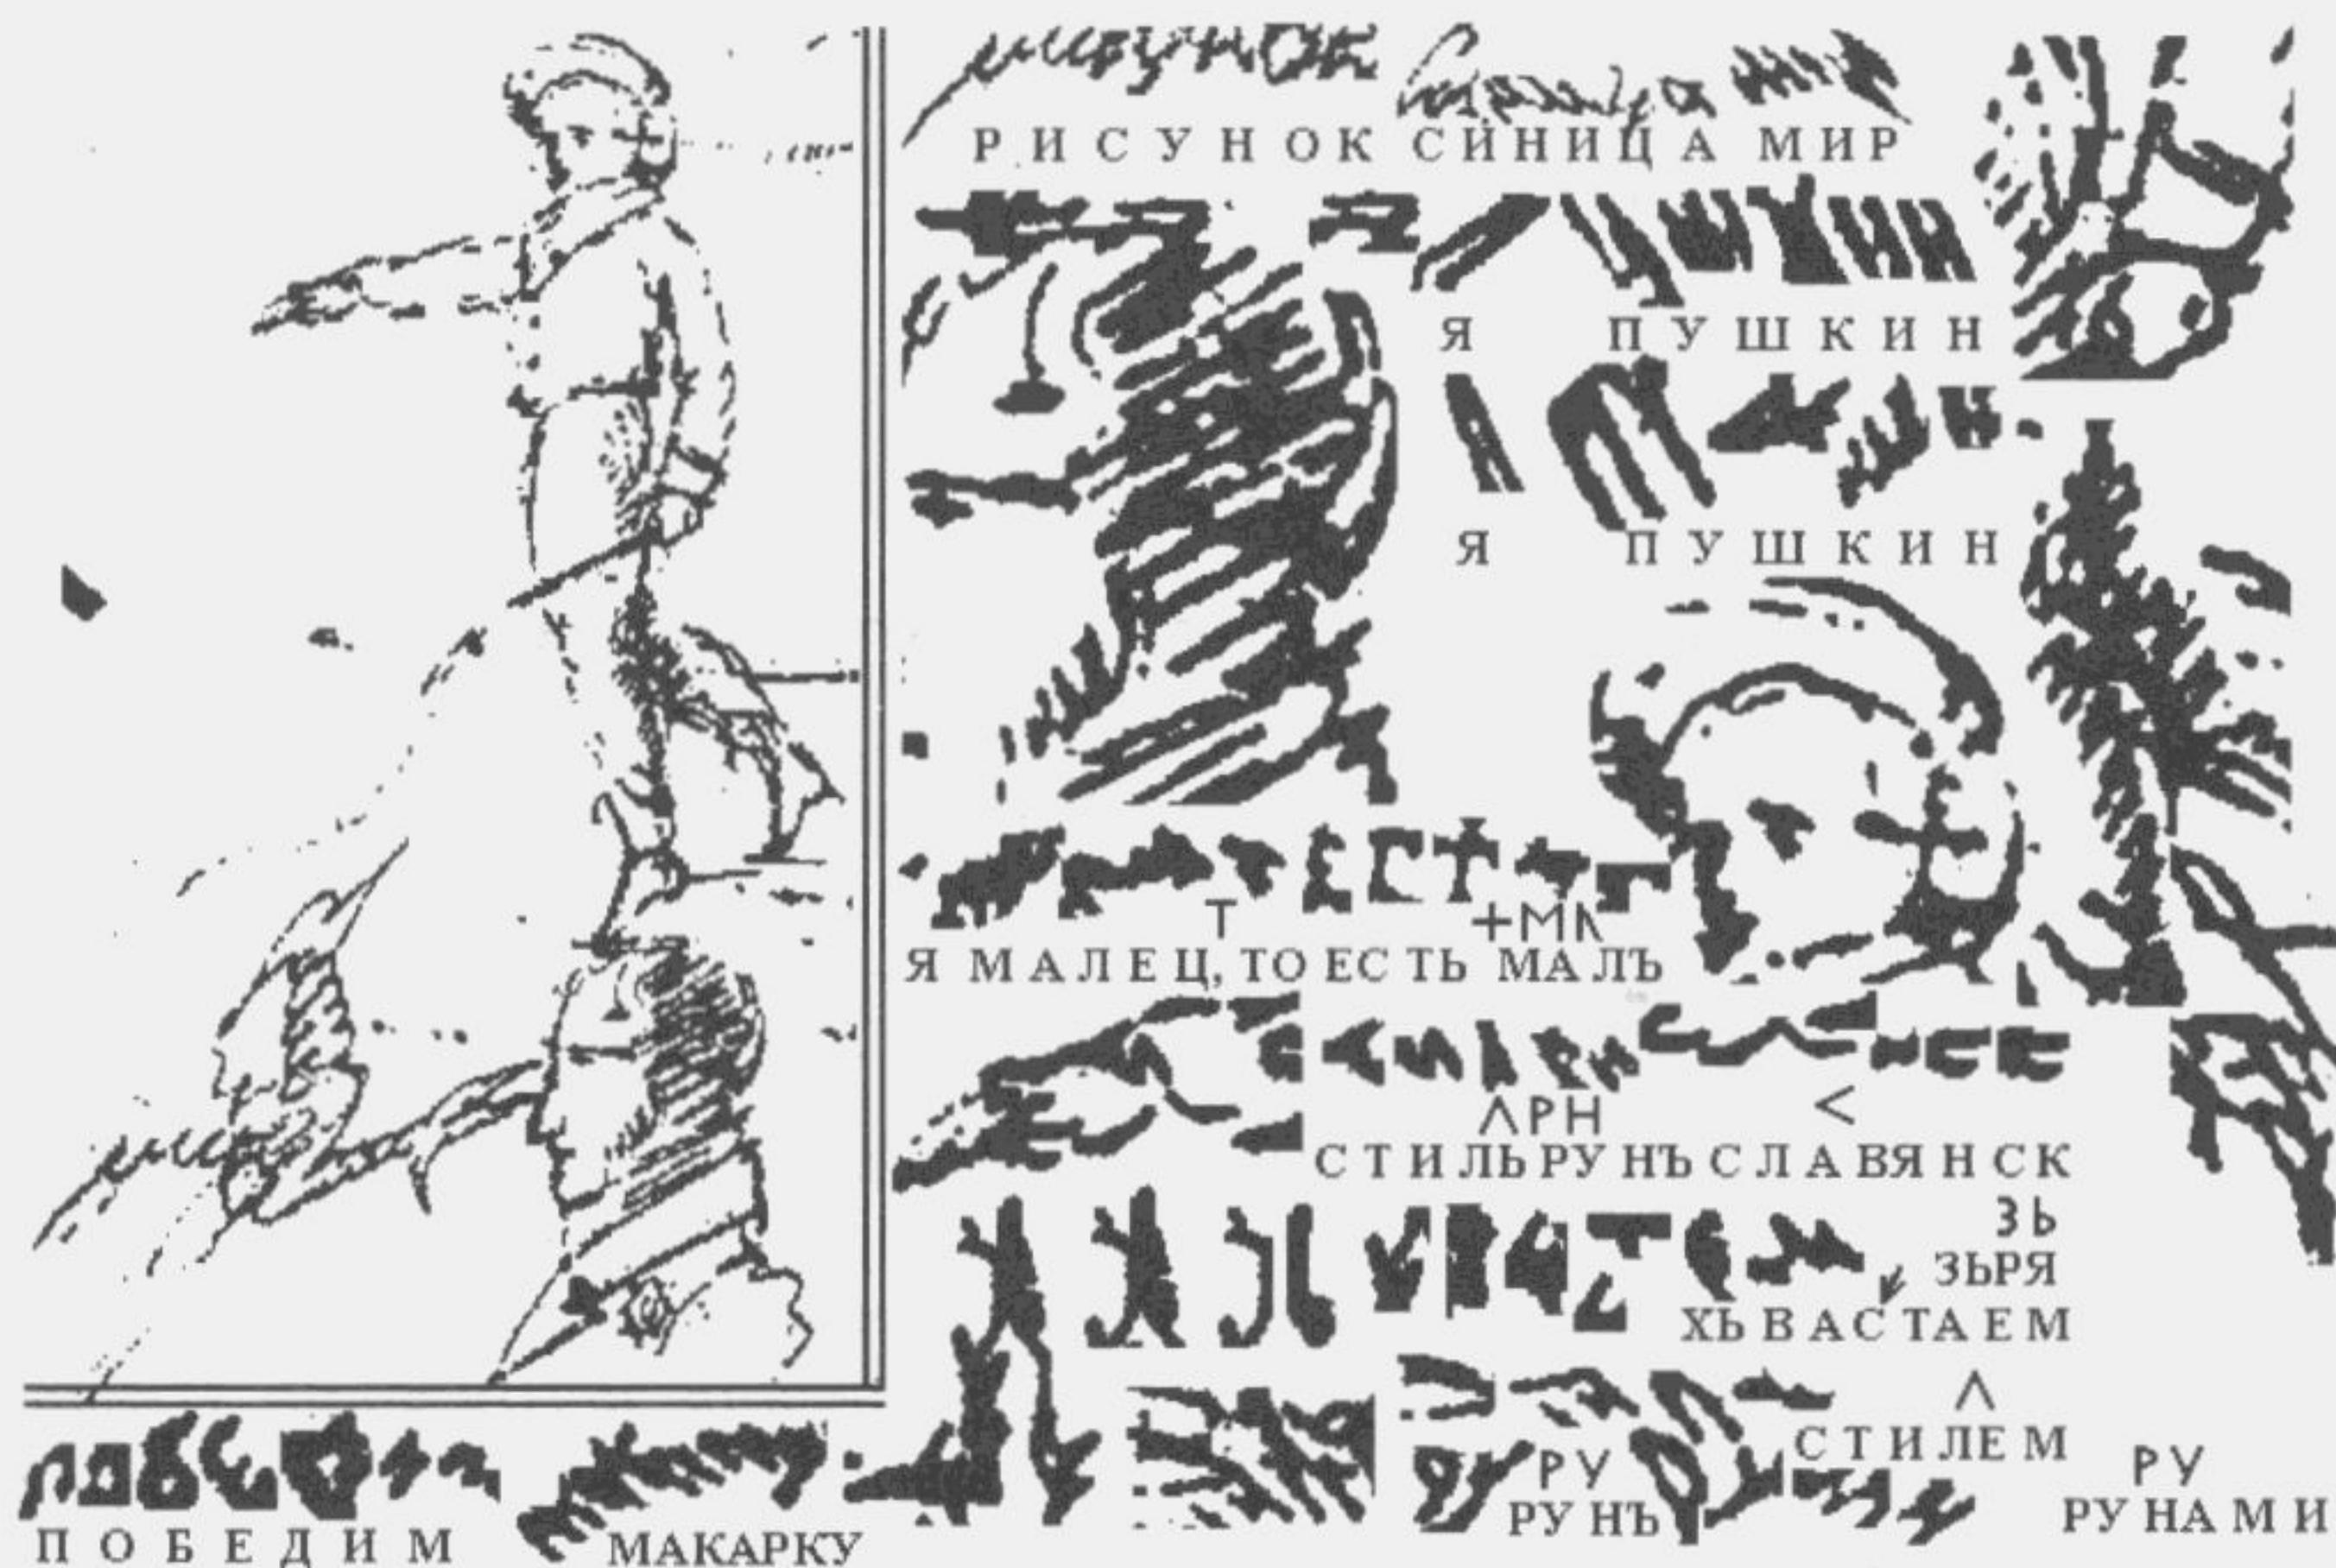 РИСУНОК СИНИЦА МИР
Я ПУШКИН
Я ПУШКИН
Т +МЛ
Я МАЛЕЦ, ТО ЕСТЬ МАЛЪ
ΛРН <
СТИЛЬ РУНЪ СЛАВЯНСК
ЗЬ
ЗЬРЯ
ХЬВАСТАЕМ
Λ
СТИЛЕМ
РУ РУ
РУНЪ РУНАМИ
ПОБЕДИМ МАКАРКУ